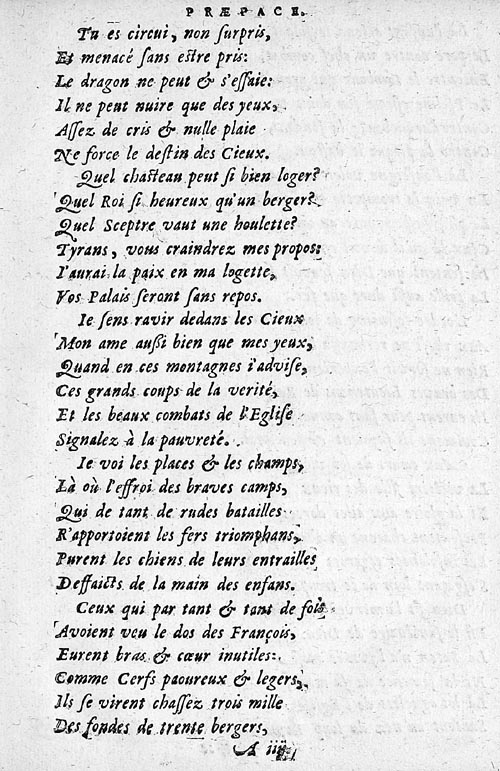 PRÆPACE.
Tu es circui, non ſurpris,
Et menacé ſans eſtre pris:
Le dragon ne peut & s'eſſaie:
Il ne peut nuire que des yeux,
Aſſez de cris & nulle plaie
Ne force le deſtin des Cieux.
Quel chaſteau peut ſi bien loger?
Quel Roi ſi heureux qu'un berger?
Quel Sceptre vaut une houlette?
Tyrans, vous craindrez mes propos:
I'aurai la paix en ma logette,
Vos Palais ſeront ſans repos.
Ie ſens ravir dedans les Cieux
Mon ame auſſi bien que mes yeux,
Quand en ces montagnes i'adviſe,
Ces grands coups de la verité,
Et les beaux combats de l'Egliſe
Signalez à la pauvreté.
Ie voi les places & les champs,
Là où l'effroi des braves camps,
Qui de tant de rudes batailles
R'apportoient les fers triomphans,
Purent les chiens de leurs entrailles
Deffaicts de la main des enfans.
Ceux qui par tant & tant de fois
Avoient veu le dos des François,
Eurent bras & cœur inutiles:
Comme Cerfs paoureux & legers,
Ils ſe virent chaſſez trois mille
Des fondes de trente bergers,
A iiij